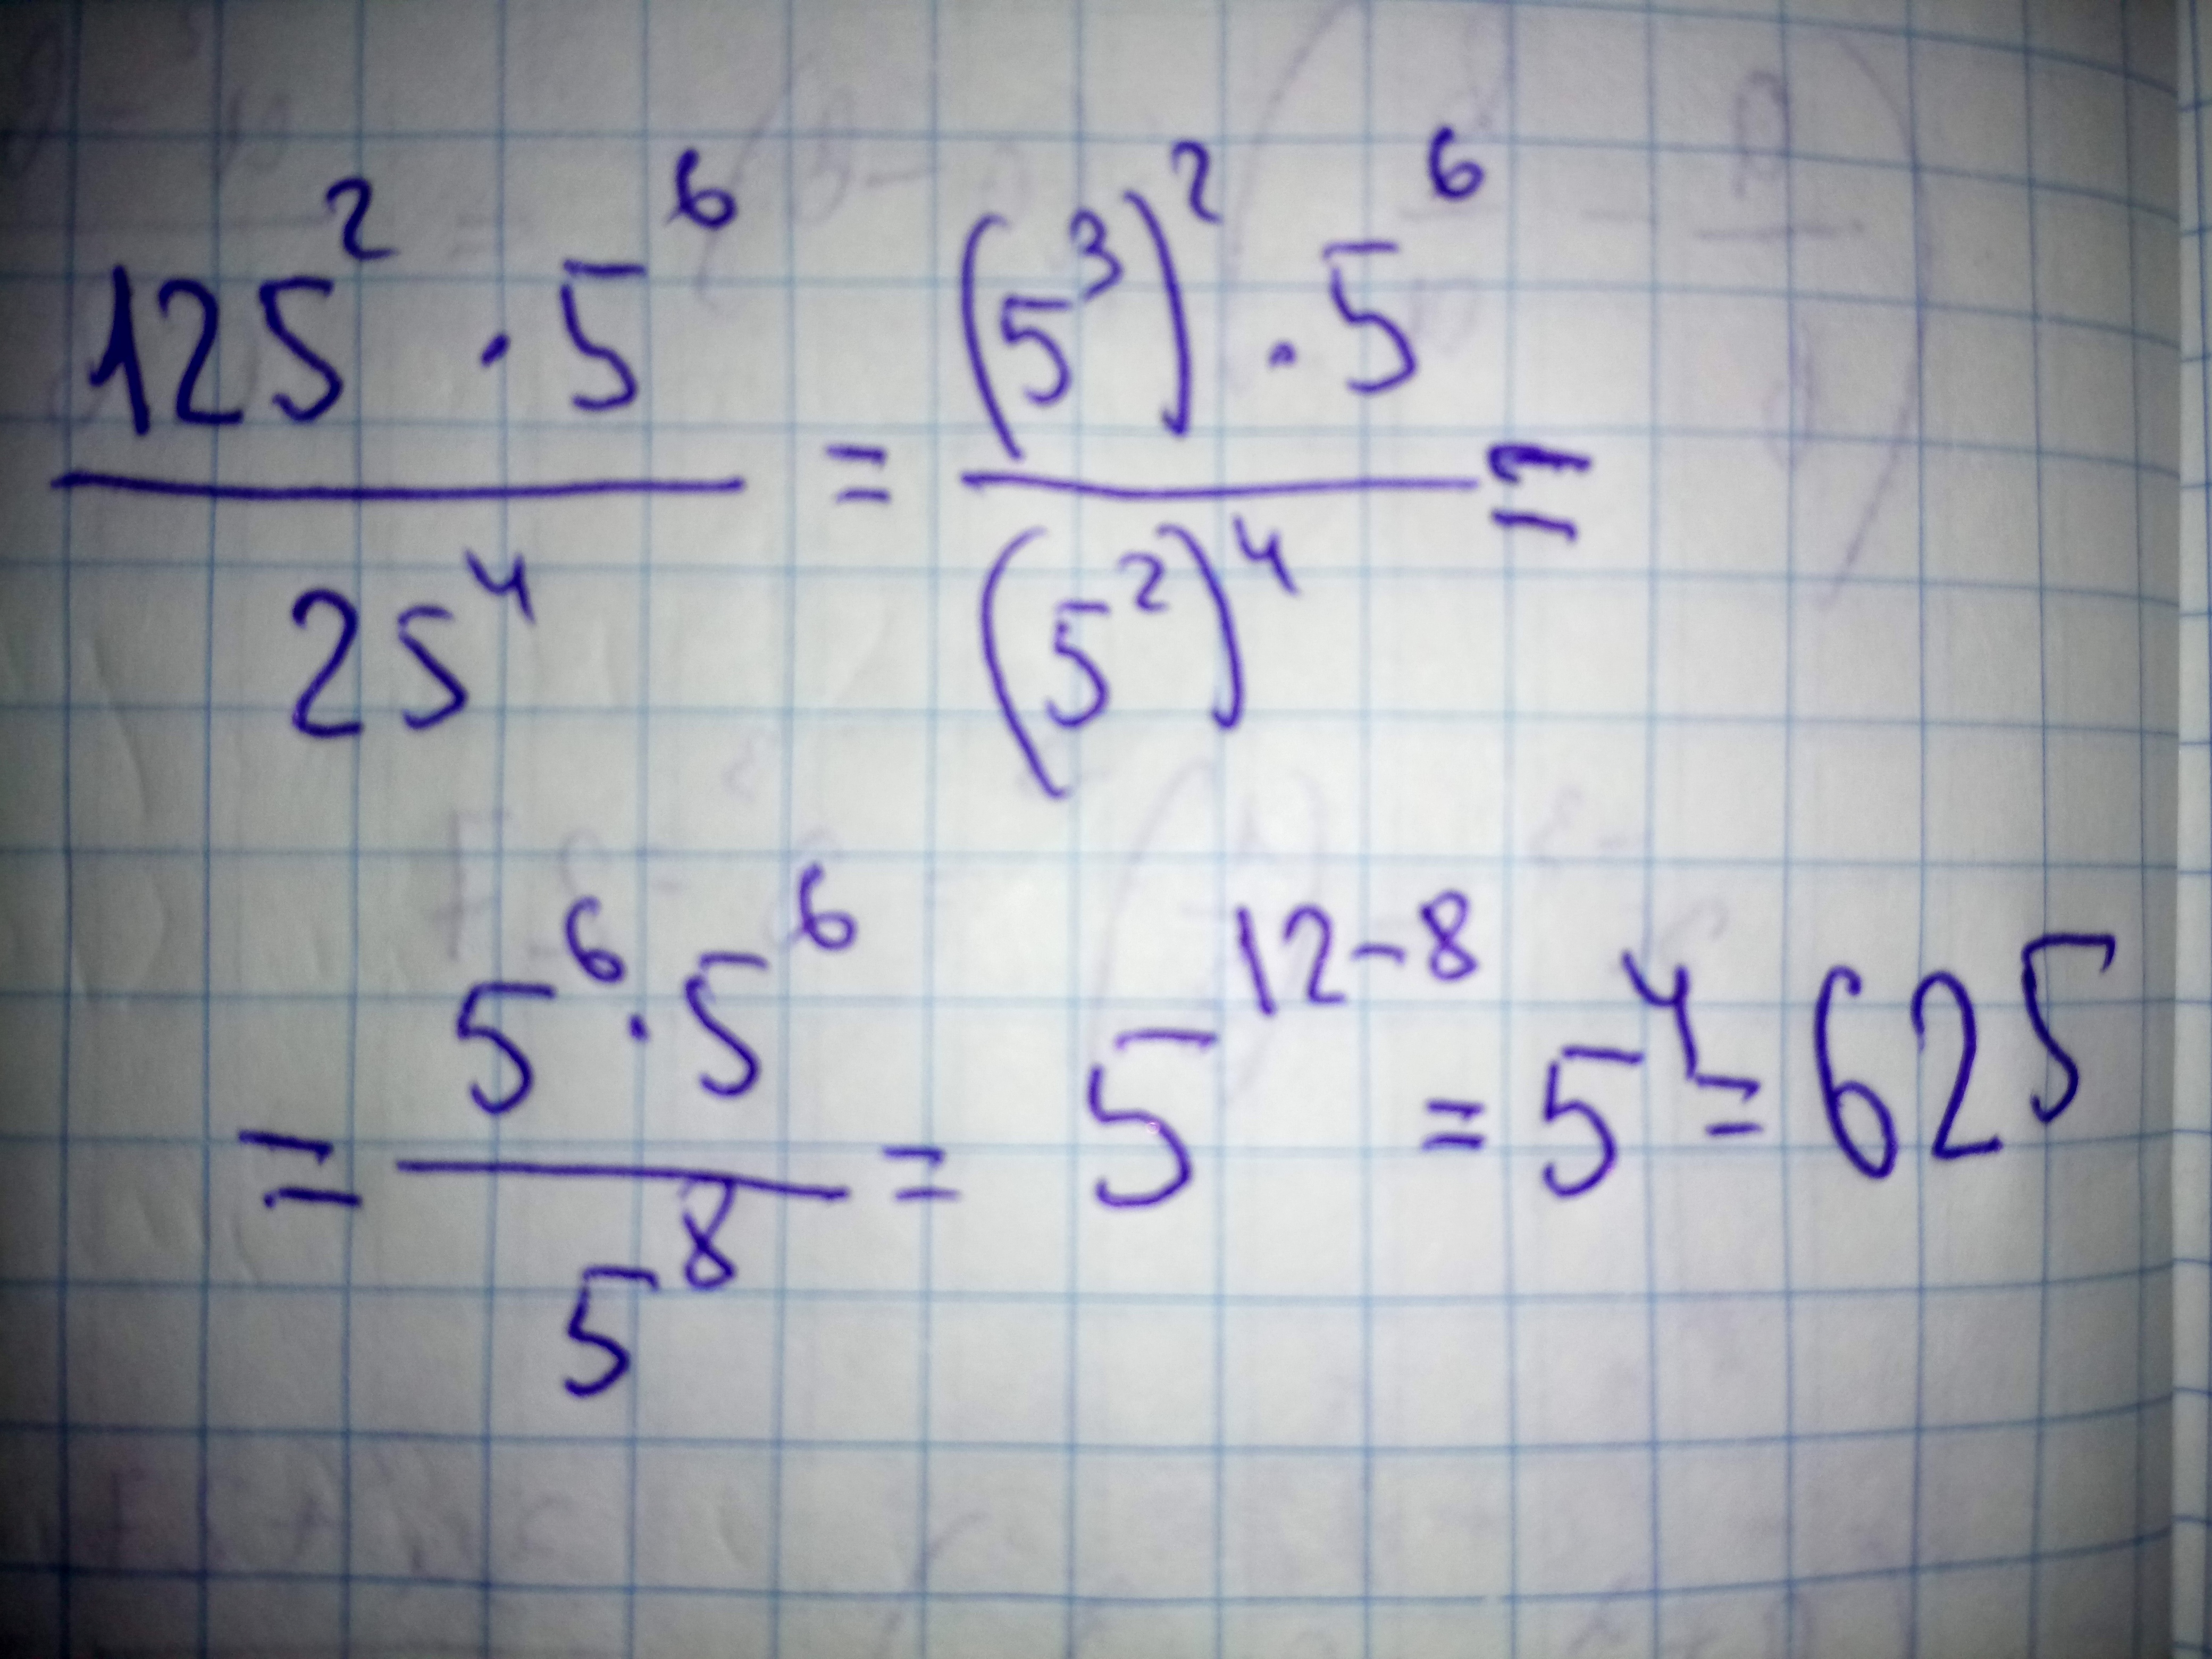 125² · 5⁶ / 25⁴ = (5³)² · 5⁶ / (5²)⁴ =
= 5⁶ · 5⁶ / 5⁸ = 5¹²⁻⁸ = 5⁴ = 625